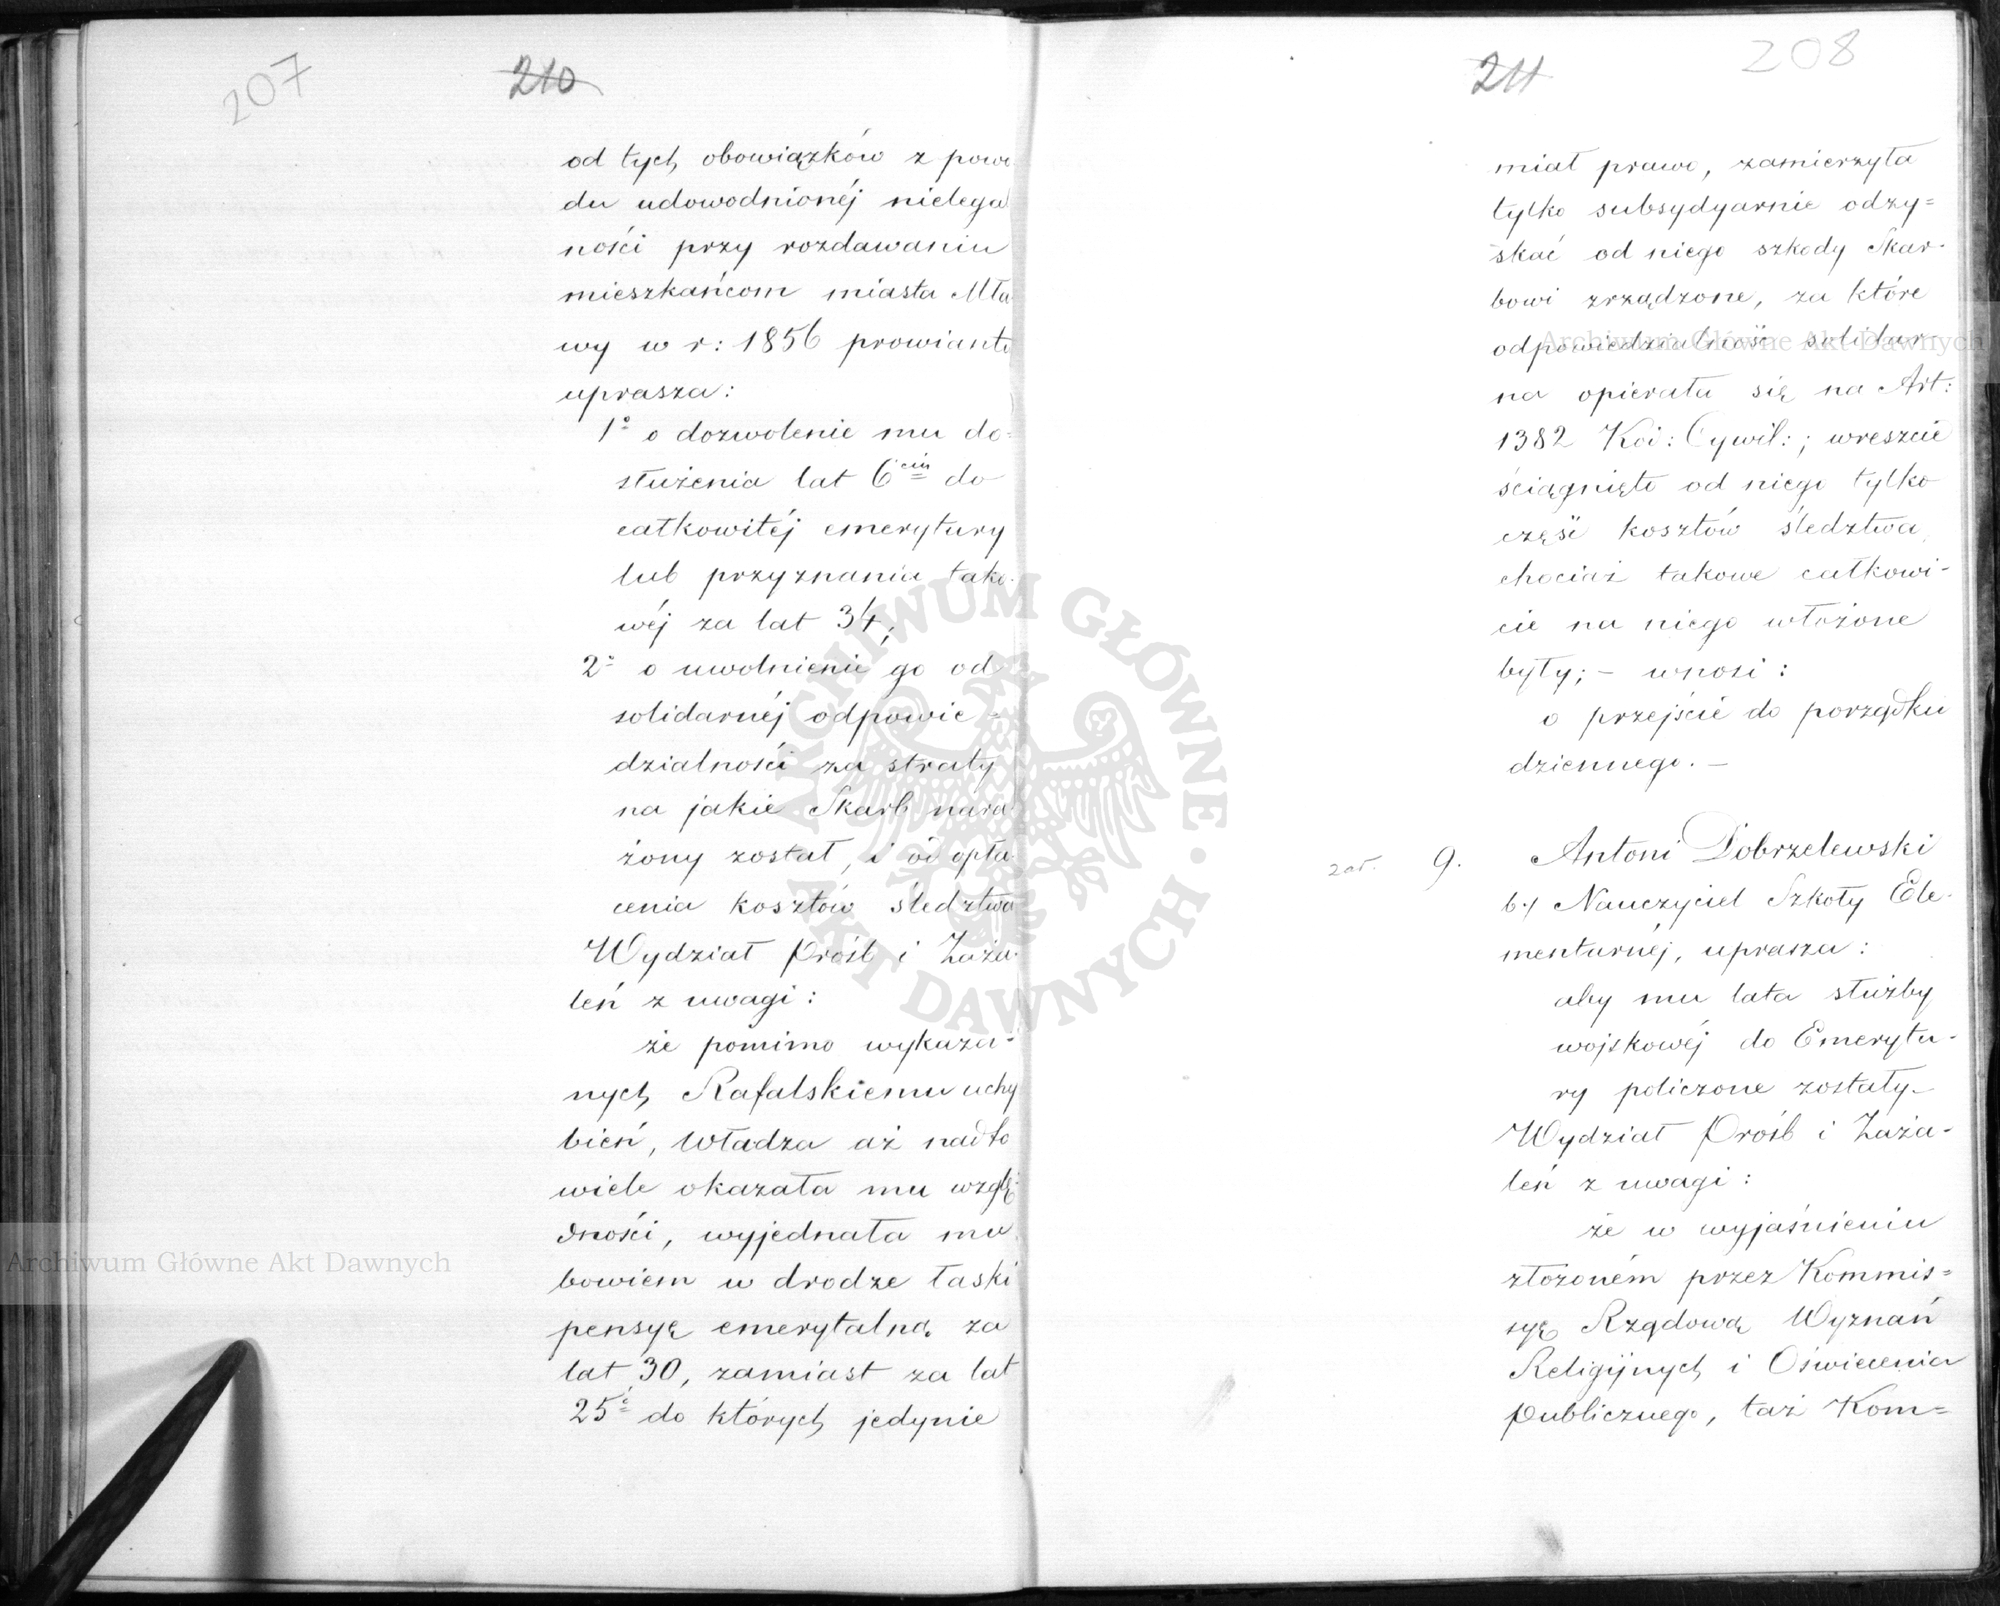 207
210
od tych obowiązków z powo
du udowodnionéj nielegal
ności przy rozdawaniu
mieszkańcom miasta Mła
wy w r: 1856 prowiantu
uprasza:
1° o dozwolenie mu do=
służenia lat 6ciu do
całkowitéj emerytury
lub przyznania tako-
wéj za lat 34;
2° o uwolnienie go od
solidarnéj odpowie=
dzialności za straty
na jakie Skarb nara
żony został, i od opła
cenia kosztów śledztwa
Wydział Próśb i Zaża-
leń z uwagi:
że pomimo wykaza-
nych Rafalskiemu uchy
bień, Władza aż nadto
wiele okazała mu wzglę-
dności, wyjednała mu
bowiem w drodze łaski
pensyę emerytalną za
lat 30, zamiast za lat
25 do których jedynie
211
208
miał prawo, zamierzyła
tylko subsydyarnie odzy=
skać od niego szkody Skar-
bowi zrządzone, za które
odpowiedzialność solidar-
na opierała się na Art:
1382 Kod: Cywil:; wreszcie
ściągnięto od niego tylko
część kosztów śledztwa,
chociaż takowe całkowi-
cie na niego włożone
były; – wnosi:
o przejście do porządku
dziennego. –
zał. 9. Antoni Dobrzelewski
b:/ Nauczyciel Szkoły Ele-
mentarnéj, uprasza:
aby mu lata służby
wojskowéj do Emerytu-
ry policzone zostały –
Wydział Próśb i Zaża-
leń z uwagi:
że w wyjaśnieniu
złożoném przez Kommis=
syę Rządową Wyznań
Religijnych i Oświecenia
Publicznego, taż Kom=
Archiwum Główne Akt Dawnych
Archiwum Główne Akt Dawnych
ARCHIWUM GŁÓWNE AKT DAWNYCH